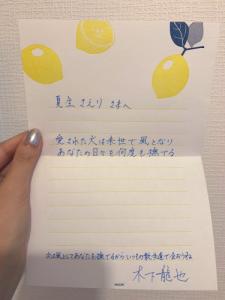 夏生 さえり さまへ
愛された犬は来世で風となり
あなたの日々を何度も撫でる
次は風としてあなたを撫でるからいつもの散歩道で会おうね
木下龍也